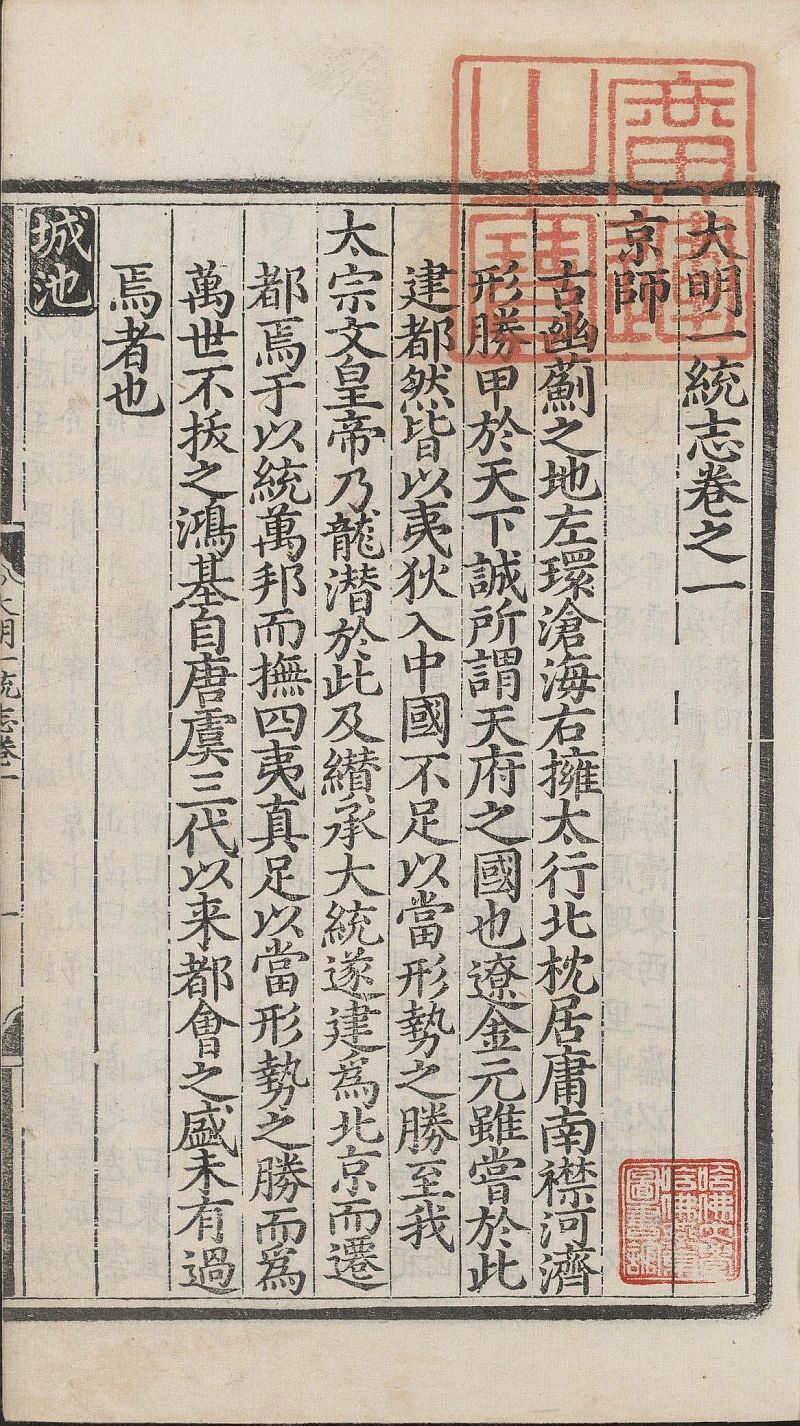 大明一統志卷之一
京師
古幽薊之地左環滄海右擁太行北枕居庸南襟河濟
形勝甲於天下誠所謂天府之國也遼金元雖嘗於此
建都然皆以夷狄入中國不足以當形勢之勝至我
太宗文皇帝乃龍潛於此及纘承大統遂建為北京而遷
都焉于以統萬邦而撫四夷真足以當形勢之勝而為
萬世不拔之鴻基自唐虞三代以来都會之盛未有過
焉者也
城池
大明一統志卷一
一
廣運之寶